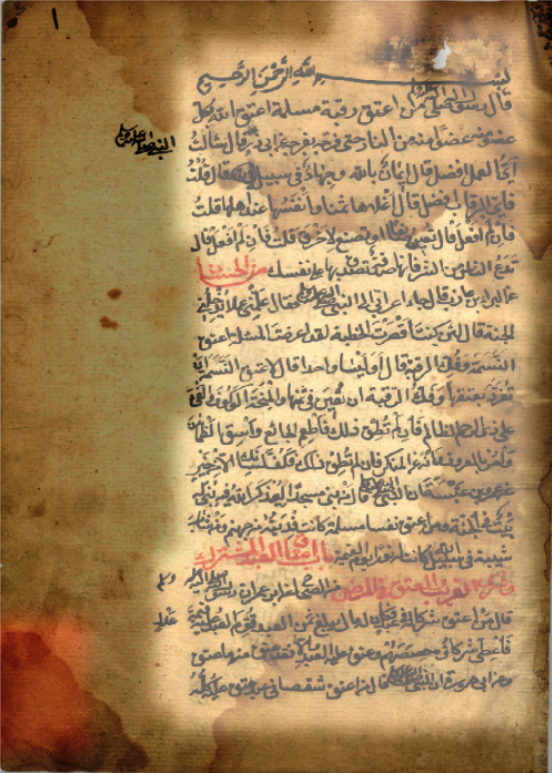 ١
بسم الله الرحمن الرحيم
قال رسول الله صلى الله عليه وسلم من اعتق رقبة مسلمة اعتق الله بكل
عضو منه عضوا منه من النار حتى فرجه بفرجه عن ابي ذر قال سألت
النبي صلى الله عليه وسلم
أي العمل افضل قال إيمان بالله وجهاد في سبيله قال قلت
فأي الرقاب افضل قال أغلاها ثمنا وأنفسها عند اهلها قلت
فإن لم أفعل قال تعين صانعا او تصنع لاخرق قلت فإن لم افعل قال
تدع الناس من الشر فإنها صدقة تصدق بها على نفسك من الحسان
عن البراء بن عازب قال جاء اعرابي الى النبي صلى الله عليه وسلم فقال علمني عملا يدخلني
الجنة قال لئن كنت أقصرت الخطبة لقد اعرضت المسئلة اعتق
النسمة وفك الرقبة قال أوليسا واحدا قال لا عتق النسمة ان
تفرد بعتقها وفك الرقبة ان تعين في ثمنها والمنحة الوكوف والفئ
على ذي الرحم الظالم فإن لم تطق ذلك فأطعم الجائع وأسق الظمآن
وأمر بالمعروف وانه عن المنكر فإن لم تطق ذلك فكف لسانك الا من خير
عن عمرو بن عبسة ان النبي صلى الله عليه وسلم قال من بنى مسجدا ليذكر الله فيه بني له
بيت في الجنة ومن اعتق نفسا مسلمة كانت فديته من جهنم ومن شاب
شيبة في سبيل الله كانت له نورا يوم القيمة باب اعتاق العبد المشترك
وشرى القريب والعتق في المرض من الصحاح عن ابن عمر ان رسول الله صلى الله عليه وسلم
قال من اعتق شركا له في عبد وكان له مال يبلغ ثمن العبد قوم العبد عليه قيمة عدل
فأعطي شركاؤه حصصهم وعتق عليه العبد والا فقد عتق منه ما عتق
وعن ابي هريرة ان النبي صلى الله عليه وسلم قال من اعتق شقصا في عبد عتق كله